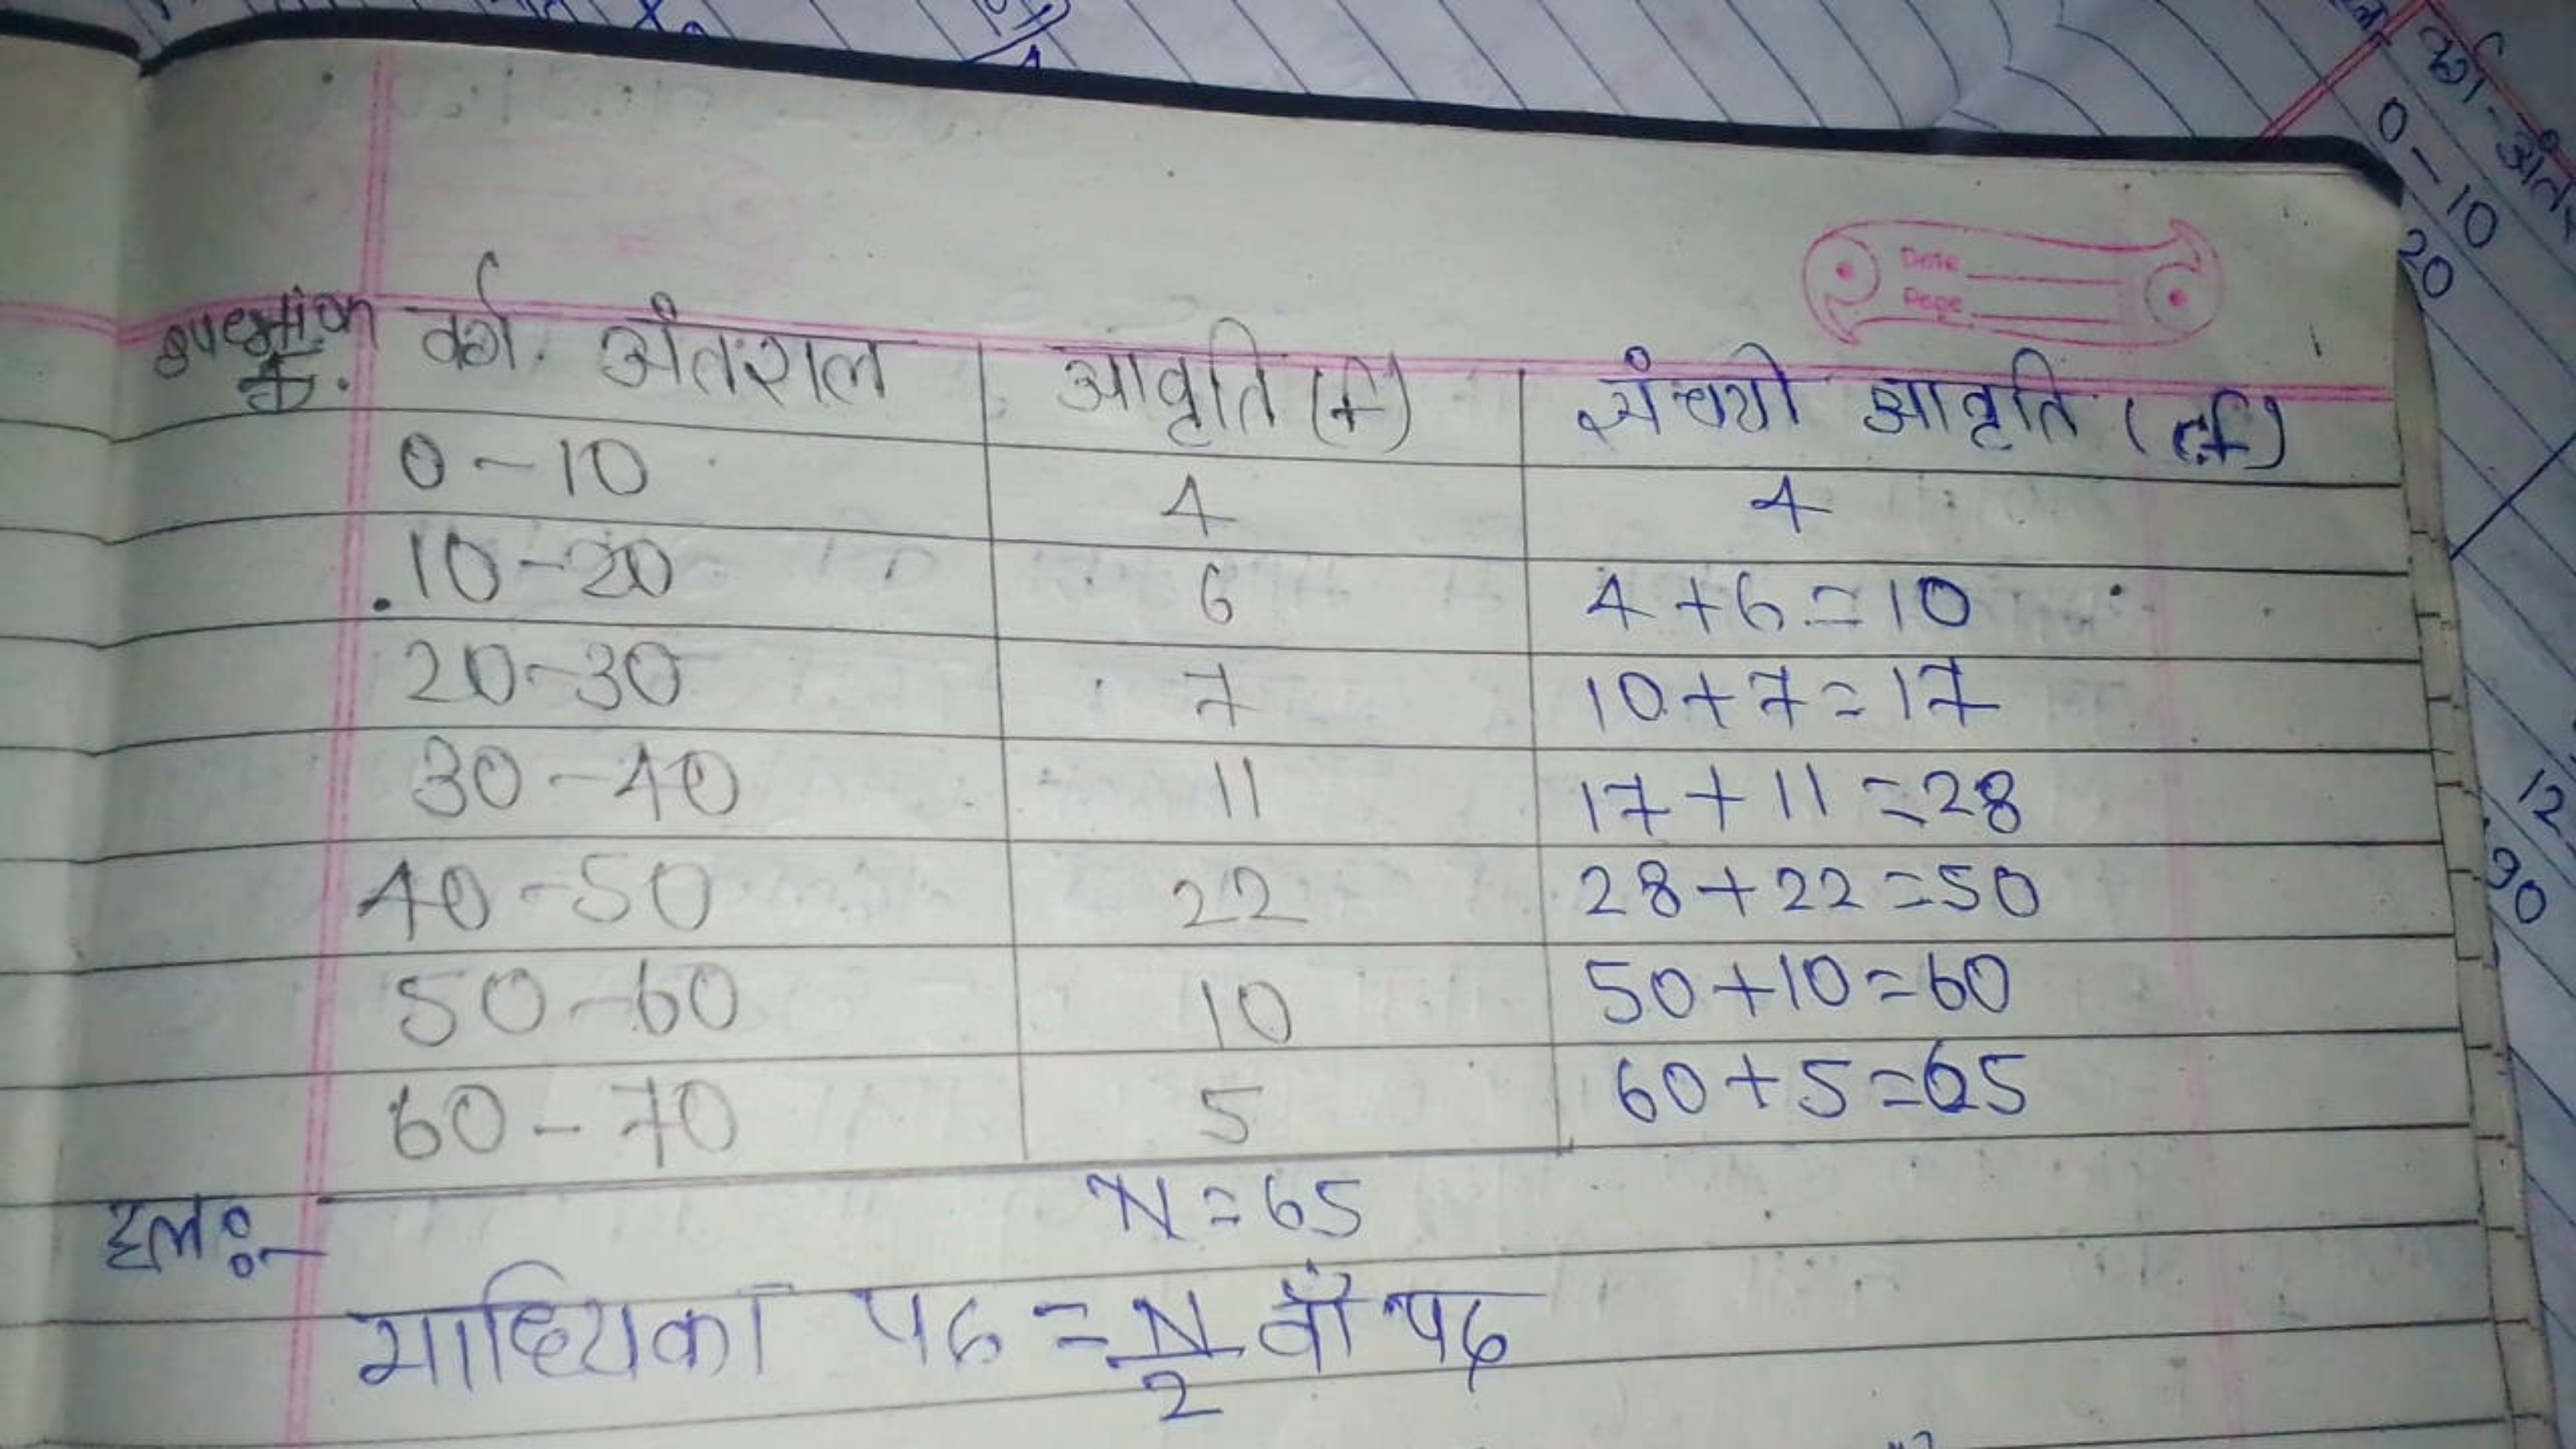 Date
Page
question 5. वर्ग अंतराल आवृति (f) संचयी आवृति (cf)
0-10 4 4
10-20 6 4+6=10
20-30 7 10+7=17
30-40 11 17+11=28
40-50 22 28+22=50
50-60 10 50+10=60
60-70 5 60+5=65
हलः- N=65
माध्यिका पद = N/2 वाँ पद
0-10
20
12
90